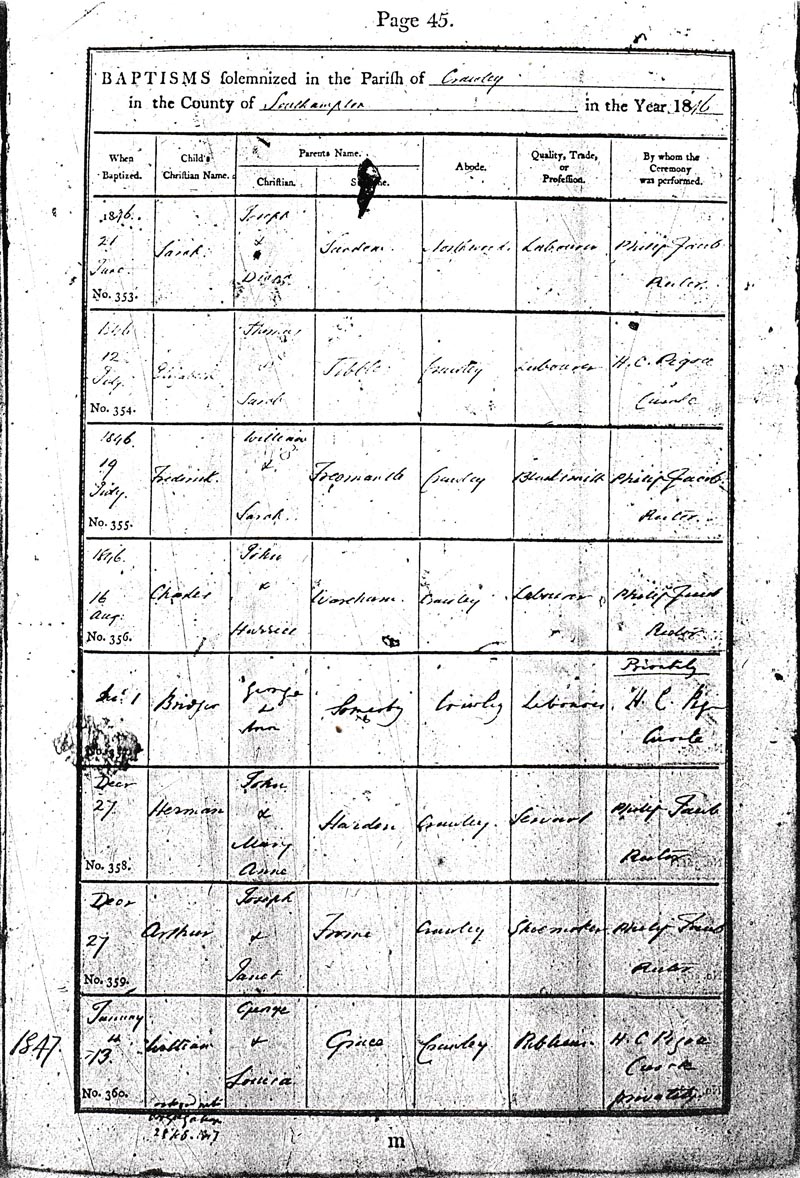 Page 45.
BAPTISMS solemnized in the Parish of Crawley
in the County of Southampton in the Year 1846
When Baptized.
Child's Christian Name.
Parents Name.
Christian.
Abode.
Quality, Trade, or Profession.
By whom the Ceremony was performed.
1846.
21
June
No. 353.
Sarah
Joseph
&
Labourer
Philip Jacob
Rector
1846
12
July.
No. 354.
Thomas
&
Sarah
Crawley
Labourer
H. C.
Curate
1846.
19
July.
No. 355.
Frederick
William
&
Sarah
Freemantle
Crawley
Blacksmith
Philip Jacob
Rector
1846.
16
Aug:
No. 356.
Charles
John
&
Harriet
Wareham
Crawley
Labourer
Philip Jacob
Rector
1
George
&
Ann
Crawley
Labourer
Privately
H. C.
Curate
Decr
27
No. 358.
Herman
John
&
Mary
Anne
Crawley
Servant
Philip Jacob
Rector
Decr
27
No. 359.
Arthur
Joseph
&
Janet
Crawley
Shoemaker
Philip Jacob
Rector
1847.
January
13th
No. 360.
William
George
&
Louisa
Grace
Crawley
H. C.
Curate
privately
m